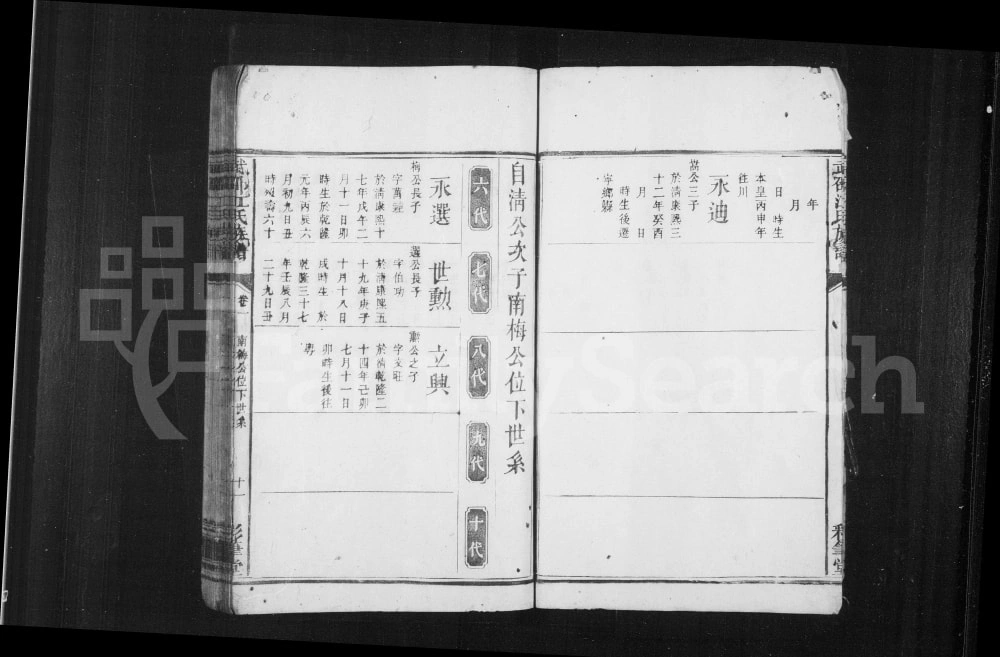 年
月
日 時生
本皇丙申年
往川
永迪
公三子
於清康熙三
十二年癸酉
月 日
時生後遷
寧鄉縣
自清公次子南梅公位下世系
六代
七代
八代
九代
十代
永選
梅公長子
字萬鍾
於清康熙十
七年戊午二
月十一日卯
時生於乾隆
元年丙辰六
月初九日丑
時歿壽六十
世勳
選公長子
字伯功
於清康熙五
十九年庚子
十月十八日
戌時生 於
乾隆三十七
年壬辰八月
二十九日丑
立興
勳公之子
字文旺
於清乾隆二
十四年己卯
七月十一日
卯時生後往
粵
卷一
南梅公位下世系
十一
彩筆堂
FamilySearch